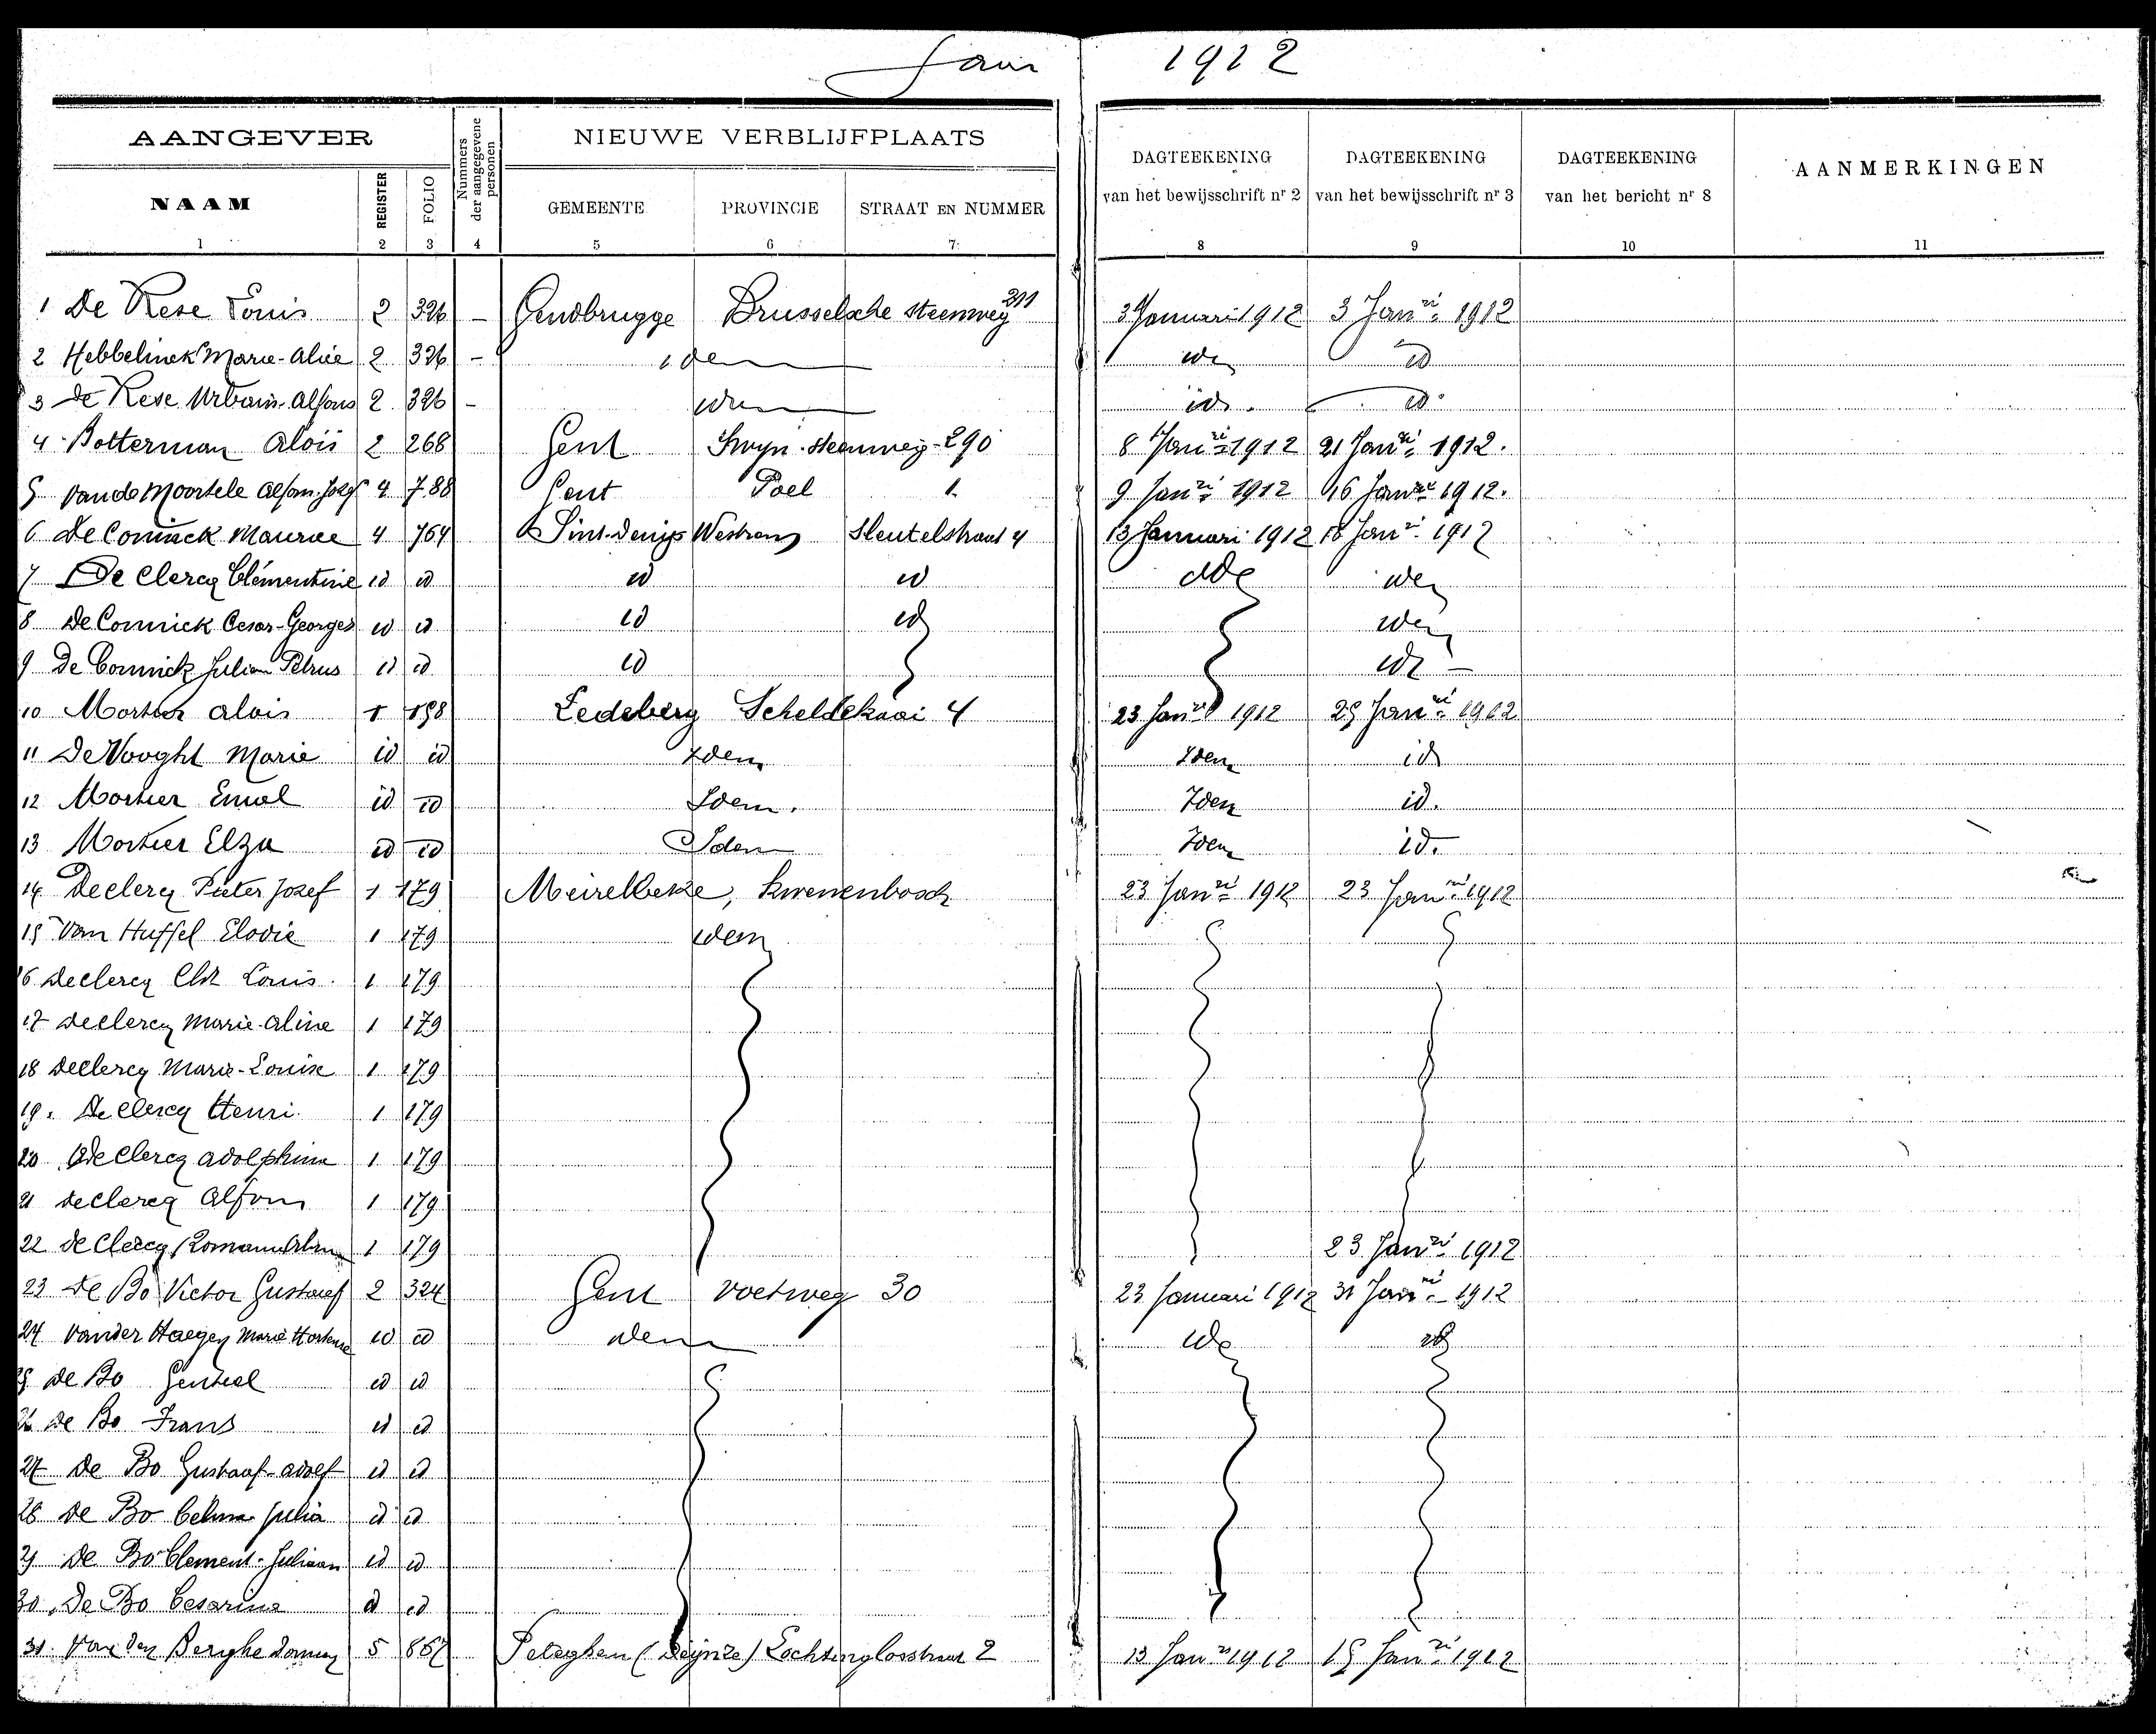 Jaar 1912
AANGEVER
NIEUWE VERBLIJFPLAATS
NAAM
REGISTER
FOLIO
Nummers der aangegevene personen
GEMEENTE
PROVINCIE
STRAAT EN NUMMER
DAGTEEKENING van het bewijsschrift nr 2
DAGTEEKENING van het bewijsschrift nr 3
DAGTEEKENING van het bericht nr 8
AANMERKINGEN
1 2 3 4 5 6 7 8 9 10 11
1 De Kese Louis 2 326 - Gendbrugge Brusselsche steenweg 211 3 Januari 1912 3 Janri 1912
2 Hebbelinck Marie-Alice 2 326 - idem id
3 De Kese Urbain-Alfons 2 326 - idem id. id.
4 Botterman Aloïs 2 268 Gent Swyn. steenweg 290 8 Janri 1912 21 Janri 1912.
5 Van de Moortele Alfons Jozef 4 788 Gent Poel 1 9 Janri 1912 16 Janri 1912.
6 De Coninck Maurice 4 764 Sint-Denijs Westrem Sleutelstraat 4 13 Januari 1912 18 Janri 1912
7 De Clercq Clémentine id id id id
8 De Coninck Cesar-Georges id id id id
9 De Coninck Julien Petrus id id id
10 Mortier Aloïs 1 198 Ledeberg Scheldekaai 4 23 Janri 1912 29 Janri 1912
11 De Vooght Marie id id Idem Idem id
12 Mortier Emiel id id Idem. Idem id.
13 Mortier Elza id id Idem Idem id.
14 Declercq Pieter Jozef 1 179 Meirelbeke, Kwenenbosch 23 Janri 1912 23 Janri 1912
15 Van Huffel Elodie 1 179 idem
16 Declercq Louis. 1 179
17 Declercq Marie-Aline 1 179
18 Declercq Marie-Louise 1 179
19. De Clercq Henri. 1 179
20 De Clercq Adolphina 1 179
21 De Clercq Alfons 1 179
22 De Clercq 1 179 23 Janri 1912
23 De Bo Victor Gustaaf 2 324 Gent Voetweg 30 23 Januari 1912 31 Janri 1912
24 Vander Haegen Marie Hortense id id idem
25 De Bo Gentiel id id
26 De Bo Frans id id
27 De Bo Gustaaf-Adolf id id
28 De Bo Celina Julia id id
29 De Bo Clement-Juliaan id id
30. De Bo Cesarina id id
31. Van den Berghe 5 867 Peteghem (Deynze) 2 13 Janri 1912 15 Janri 1912